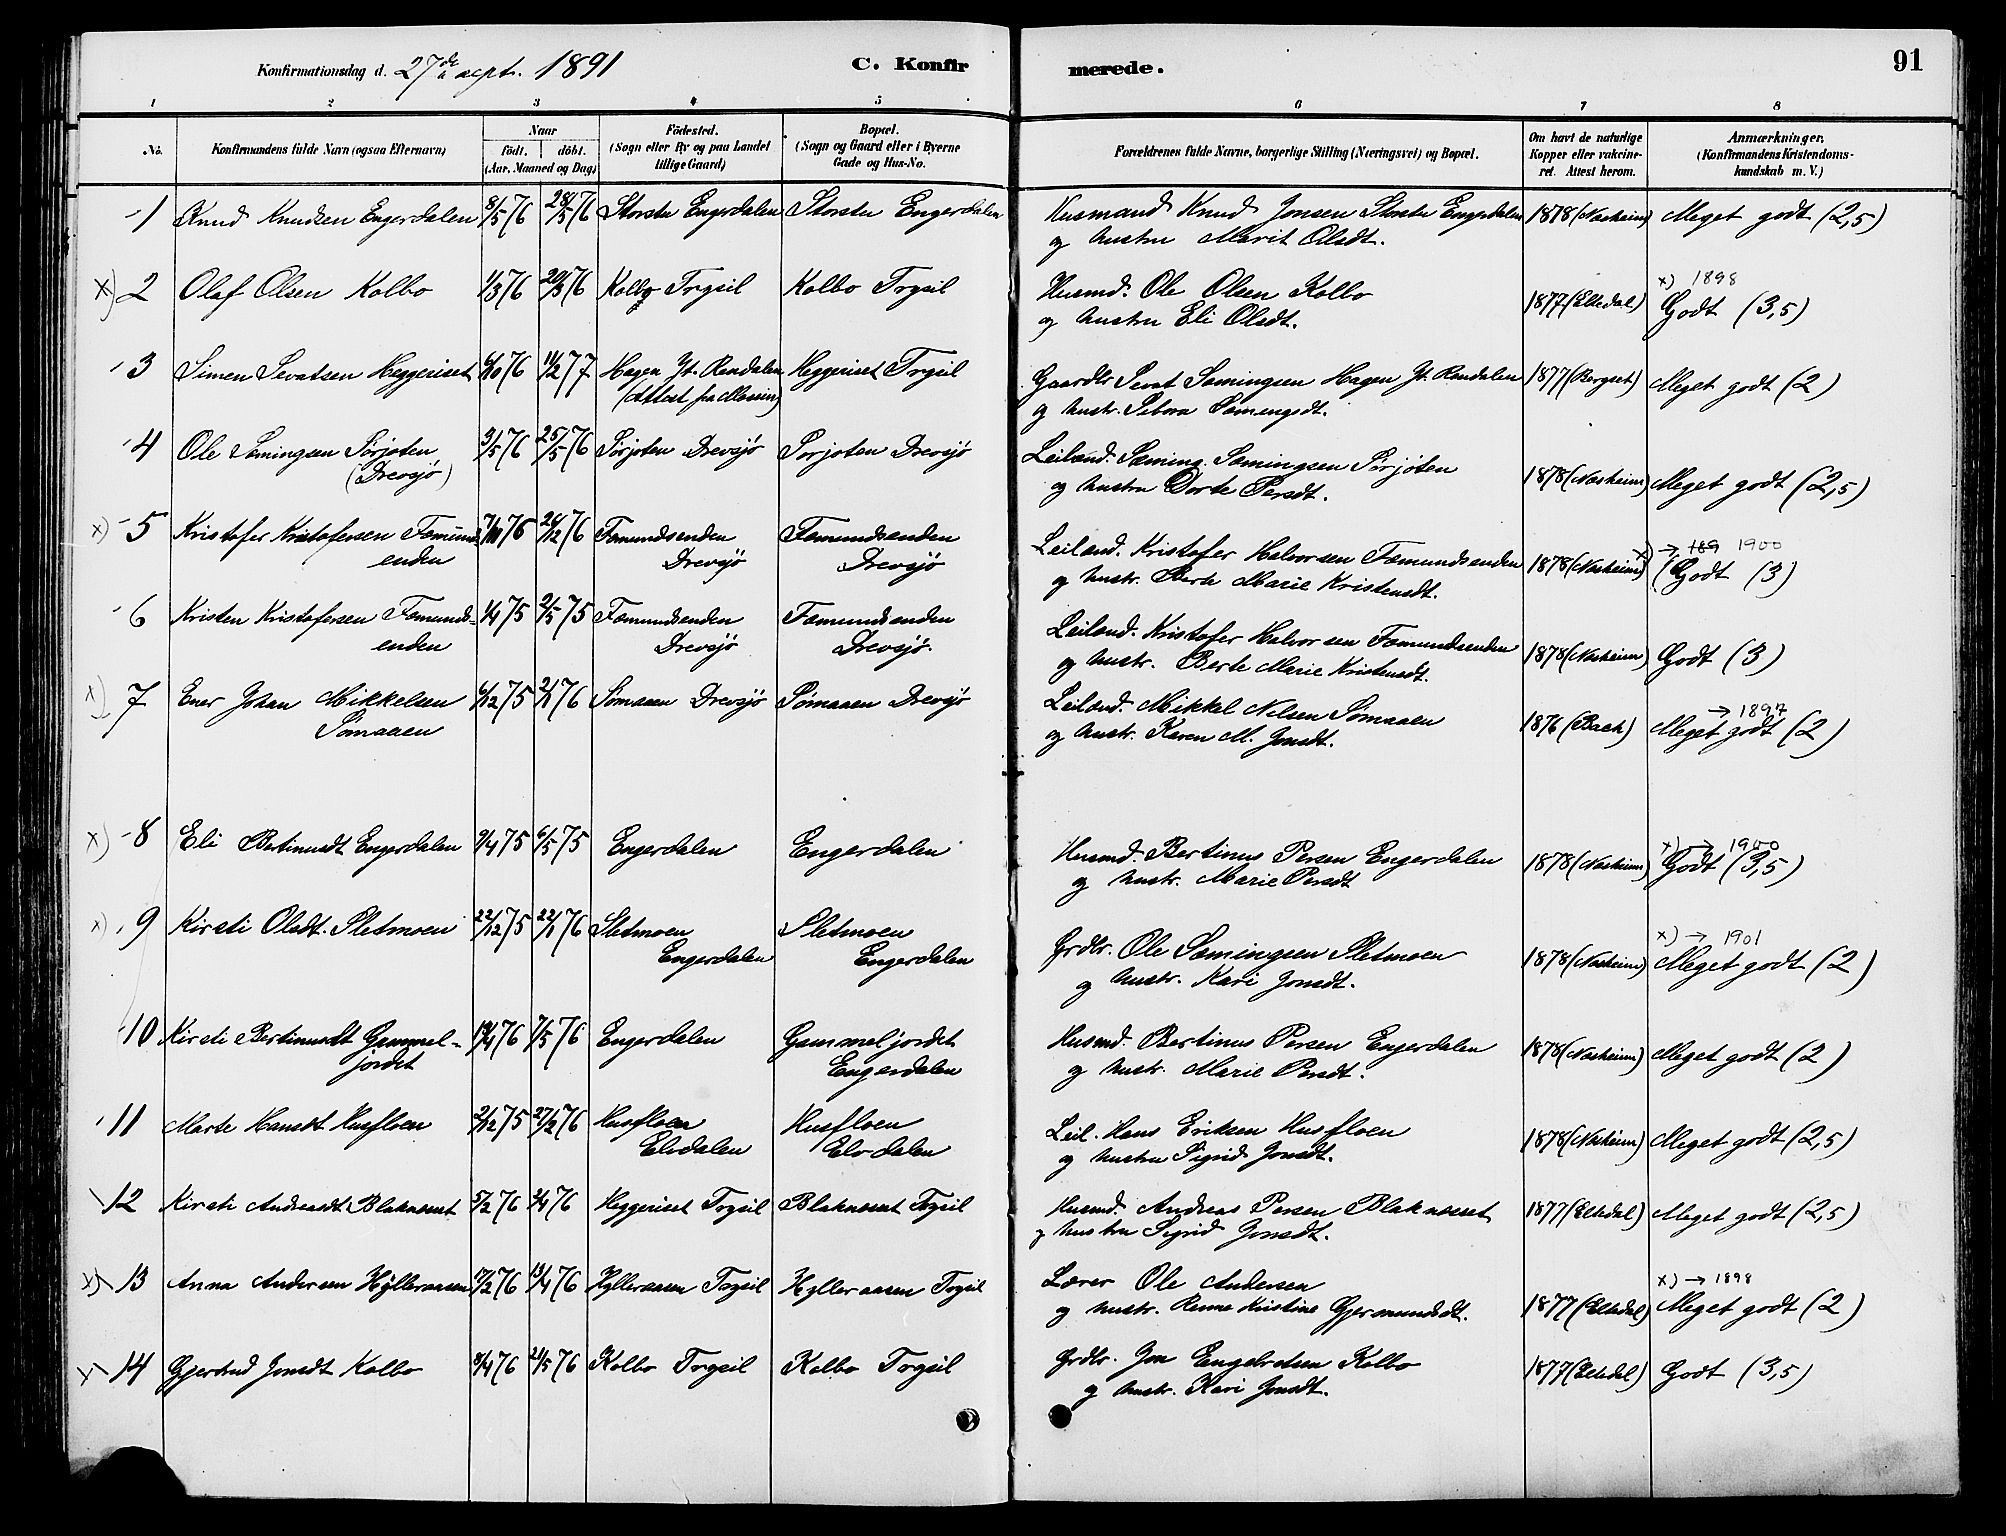 Konfirmationsdag d. 27de sept. 1891 C. Konfirmerede. 91
1 2 3 4 5 6 7 8
No. Konfirmandens fulde Navn (ogsaa Efternavn) Naar født. døbt. (Aar, Maaned og Dag) Fødested. (Sogn eller By og paa Landet tillige Gaard) Bopæl. (Sogn og Gaard eller i Byerne Gade og Hus-No. Forældrenes fulde Navne, borgerlige Stilling (Næringsvei) og Bopæl. Om havt de naturlige Kopper eller vakcineret. Attest herom. Anmærkninger. (Konfirmandens Kristendomskundskab m. V.)
1 Knud Knudsen Engerdalen 8/5 76 28/5 76 Storstu Engerdalen Storstu Engerdalen Husmand Knud Jonsen Storstu Engerdalen 1878 (Nasheim) Meget godt (2,5)
og hustru Marit Olsdt.
x) 2 Olaf Olsen Kolbo 1/3 76 20/3 76 Kolbo Trysil Kolbo Trysil Husmd. Ole Olsen Kolbo 1877 (Elledal) x) 1898 Godt (3,5)
og hustru Eli Olsdt.
3 Simen Sevatsen Heggeriset 6/10 76 11/2 77 Hagen Yt. Rendalen Heggeriset Trysil Gaardbr. Sevat Semingsen Hagen Yt. Rendalen 1877 (Bergset) Meget godt (2)
(Attest fra Messin) og hustr. Semingsdt.
4 Ole Semingsen Sørjoten 3/5 76 25/5 76 Sørjoten Drevsjø Sørjoten Drevsjø Leilænd. Seming Semingsen Sørjoten 1878 (Nasheim) Meget godt (2,5)
(Drevsjø) og hustru Dorte Persdt.
x) 5 Kristofer Kristofersen Fæmunds- 7/10 76 26/12 76 Fæmundsenden Fæmundsenden Leilænd. Kristofer Halvorsen Fæmundsenden 1878 (Nasheim) x) → 189 1900 Godt (3)
enden Drevsjø Drevsjø og hustr. Berte Marie Kristensdt.
6 Kristen Kristofersen Fæmunds- 1/4 75 2/5 75 Fæmundsenden Fæmundsenden Leilænd. Kristofer Halvorsen Fæmundsenden 1878 (Nasheim) Godt (3)
enden Drevsjø Drevsjø. og hustr. Berte Marie Kristensdt.
x) 7 Ener Johan Mikkelsen 6/12 75 2/1 76 Sømaaen Drevsjø Sømaaen Drevsjø Leilænd. Mikkel Nilsen Sømaaen 1876 (Bach) → 1897 Meget godt (2)
Sømaaen og hustr. Karen M. Jonsdt.
x) 8 Eli Bertinusdt Engerdalen 9/4 75 6/5 75 Engerdalen Engerdalen Husmd. Bertinus Persen Engerdalen 1878 (Nasheim) x) → 1900 Godt (3,5)
og hustr. Marie Persdt
x) 9 Kirsti Olsdt. Sletmoen 22/12 75 22/1 76 Sletmoen Sletmoen Grdbr. Ole Semingsen Sletmoen 1878 (Nasheim) x) → 1901 Meget godt (2)
Engerdalen Engerdalen og hustr. Kari Jonsdt.
10 Kirsti Bertinusdt Gammel- 19/4 76 7/5 76 Engerdalen Gammeljordet Husmd. Bertinus Persen Engerdalen 1878 (Nasheim) Meget godt (2)
jordet Engerdalen og hustr. Marie Persdt.
11 Marte Hansdt Husfloen 2/12 75 27/2 76 Husfloen Husfloen Leil. Hans Eriksen Husfloen 1878 (Nasheim) Meget godt (2,5)
Elvdalen Elvdalen og hustru Sigrid Jonsdt.
12 Kirsti Andreasdt Blaknæset 5/2 76 2/4 76 Heggeriset Trysil Blaknæset Trysil Husmd. Andreas Persen Blaknæset 1877 (Elledal) Meget godt (2,5)
og hustru Sigrid Jonsdt.
x) 13 Anna Andersen Hylleraasen 17/2 76 19/4 76 Hylleraasen Trysil Hylleraasen Trysil Lærer Ole Andersen 1877 (Elledal) x) → 1898 Meget godt (2)
og hustr. Kristine Gjermundsdt.
x) 14 Gjertrud Jonsdt Kolbo 9/4 76 21/5 76 Kolbo Trysil Kolbo Trysil Grdbr. Jon Engebretsen Kolbo 1877 (Elledal) Godt (3,5)
og hustr. Kari Jonsdt.